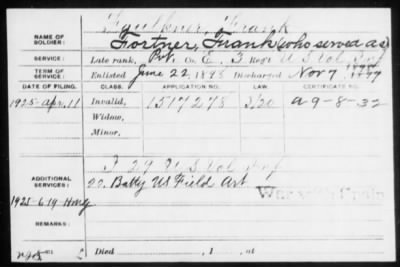 Faulkner, Frank
NAME OF SOLDIER: Fortner, Frank (who served as)
SERVICE: Late rank, Pvt. Co. E, 3 Reg't U S Vol Inf
TERM OF SERVICE: Enlisted June 22, 1898 Discharged Nov 7
DATE OF FILING. CLASS. APPLICATION NO. LAW. CERTIFICATE NO.
1925-Apr. 11 Invalid, 1517278 a 9-8-32
Widow,
Minor.
ADDITIONAL SERVICES: 29 U S Vol Inf
22. Batty US Field Art
War with Spain
1925-6-19
REMARKS:
Died , 1 , at